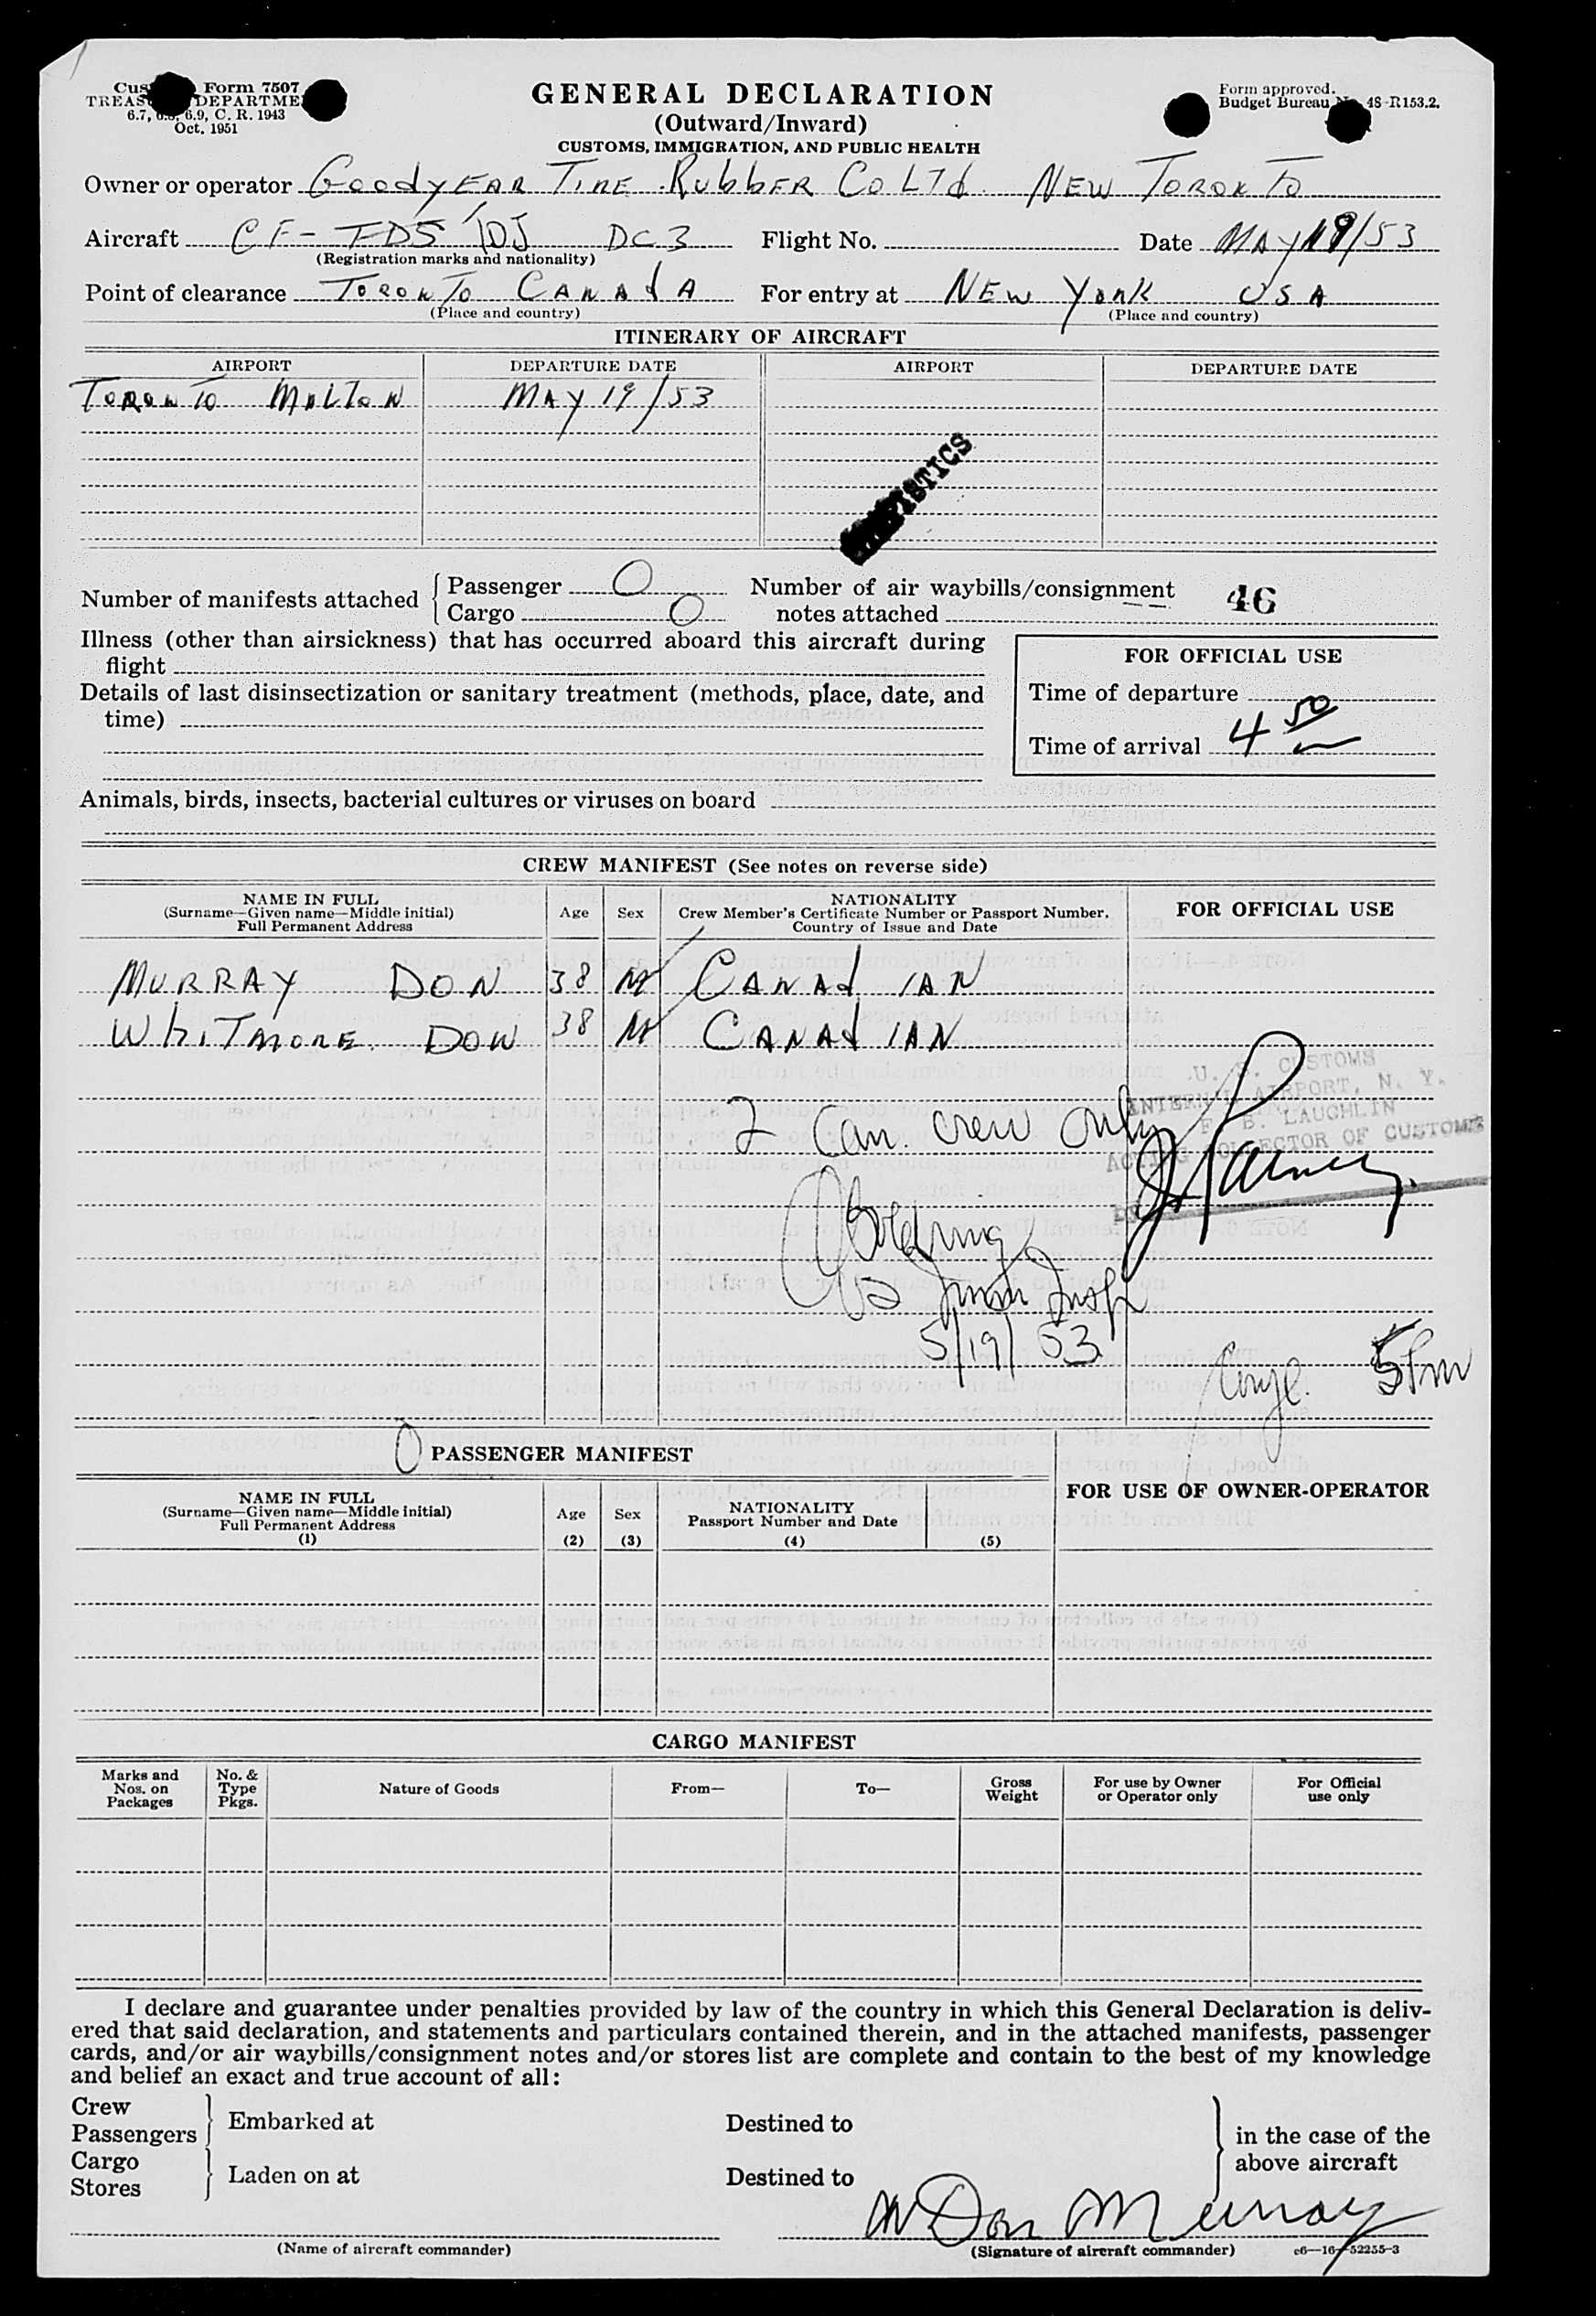 Form 7507
GENERAL DECLARATION
Form approved.
Budget Bureau No. 48-R153.2.
6.7, 6.8, 6.9, C. R. 1943
Oct. 1951
(Outward/Inward)
CUSTOMS, IMMIGRATION, AND PUBLIC HEALTH
Owner or operator GoodyEAR TIRE RubbER Co LTd. NEW TORONTO
Aircraft CF- DC3 Flight No. Date MAY 19/53
(Registration marks and nationality)
Point of clearance TORONTO CANAdA For entry at NEW YORK USA
(Place and country) (Place and country)
ITINERARY OF AIRCRAFT
AIRPORT DEPARTURE DATE AIRPORT DEPARTURE DATE
TORONTO MALTON MAY 19/53
Number of manifests attached Passenger 0 Number of air waybills/consignment 46
Cargo 0 notes attached
Illness (other than airsickness) that has occurred aboard this aircraft during
flight
FOR OFFICIAL USE
Details of last disinsectization or sanitary treatment (methods, place, date, and
time)
Time of departure
Time of arrival 4 50
Animals, birds, insects, bacterial cultures or viruses on board
CREW MANIFEST (See notes on reverse side)
NAME IN FULL
(Surname—Given name—Middle initial)
Full Permanent Address
Age Sex
NATIONALITY
Crew Member's Certificate Number or Passport Number.
Country of Issue and Date
FOR OFFICIAL USE
MURRAY DON 38 M CANAdIAN
WhITMORE DON 38 M CANAdIAN
U. S. CUSTOMS
AIRPORT, N. Y.
2 Can. crew only
F. B. LAUGHLIN
ACTING COLLECTOR OF CUSTOMS
5/19/53
5 Pm
0 PASSENGER MANIFEST
FOR USE OF OWNER-OPERATOR
NAME IN FULL
(Surname—Given name—Middle initial)
Full Permanent Address
(1)
Age
(2)
Sex
(3)
NATIONALITY
Passport Number and Date
(4) (5)
CARGO MANIFEST
Marks and
Nos. on
Packages
No. &
Type
Pkgs.
Nature of Goods
From—
To—
Gross
Weight
For use by Owner
or Operator only
For Official
use only
I declare and guarantee under penalties provided by law of the country in which this General Declaration is deliv-
ered that said declaration, and statements and particulars contained therein, and in the attached manifests, passenger
cards, and/or air waybills/consignment notes and/or stores list are complete and contain to the best of my knowledge
and belief an exact and true account of all:
Crew
Passengers
Embarked at Destined to
Cargo
Stores
Laden on at Destined to
in the case of the
above aircraft
W Don Murray
(Name of aircraft commander) (Signature of aircraft commander) c6—16—52255-3